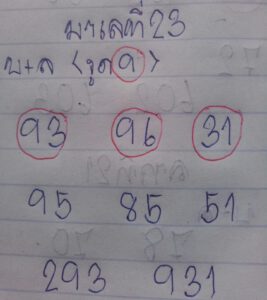 มาเลที่23
บ+ล <รูด9>
93 96 31
95 85 51
293 931